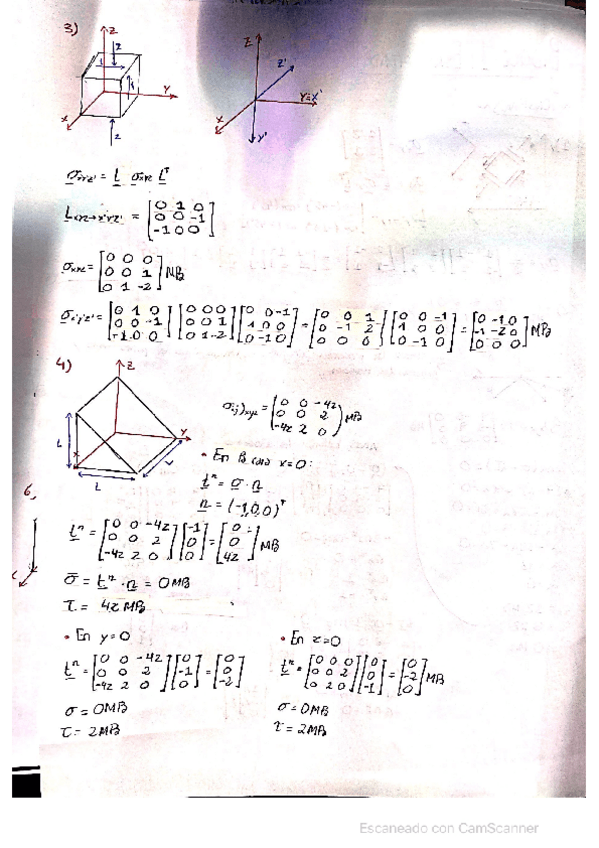 3)
Z
2
1
1
Y
X
2
Z
Z'
Y=X'
X
Y'
σx'y'z' = L σxyz Lᵀ
Lxyz→x'y'z' = [0 1 0; 0 0 -1; -1 0 0]
σxyz = [0 0 0; 0 0 1; 0 1 -2] MB
σx'y'z' = [0 1 0; 0 0 -1; -1 0 0] [0 0 0; 0 0 1; 0 1 -2] [0 0 -1; 1 0 0; 0 -1 0] = [0 0 1; 0 -1 2; 0 0 0] [0 0 -1; 1 0 0; 0 -1 0] = [0 -1 0; -1 -2 0; 0 0 0] MB
4)
Z
Y
X
L
L
σij)xyz = (0 0 -4z; 0 0 2; -4z 2 0) MB
• En la cara x=0:
tⁿ = σ · n
n = (-1,0,0)ᵀ
6,
tⁿ = [0 0 -4z; 0 0 2; -4z 2 0] [-1; 0; 0] = [0; 0; 4z] MB
σ = tⁿ · n = 0MB
τ = 4z MB
• En y=0
tⁿ = [0 0 -4z; 0 0 2; -4z 2 0] [0; -1; 0] = [0; 0; -2]
σ = 0MB
τ = 2MB
• En z=0
tⁿ = [0 0 0; 0 0 2; 0 2 0] [0; 0; -1] = [0; -2; 0] MB
σ = 0MB
τ = 2MB
Escaneado con CamScanner